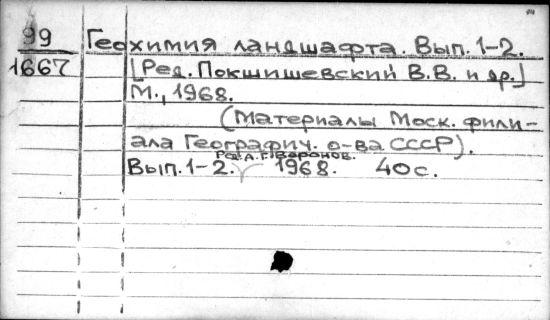 99 Геохимия ландшафта. Вып. 1-2.
1667 [Ред. Покшишевский В.В. и др.]
М., 1968.
(Материалы Моск. фили-
ала Географич. о-ва СССР).
Ред. А.Г. Воронов.
Вып. 1-2. 1968. 40 с.